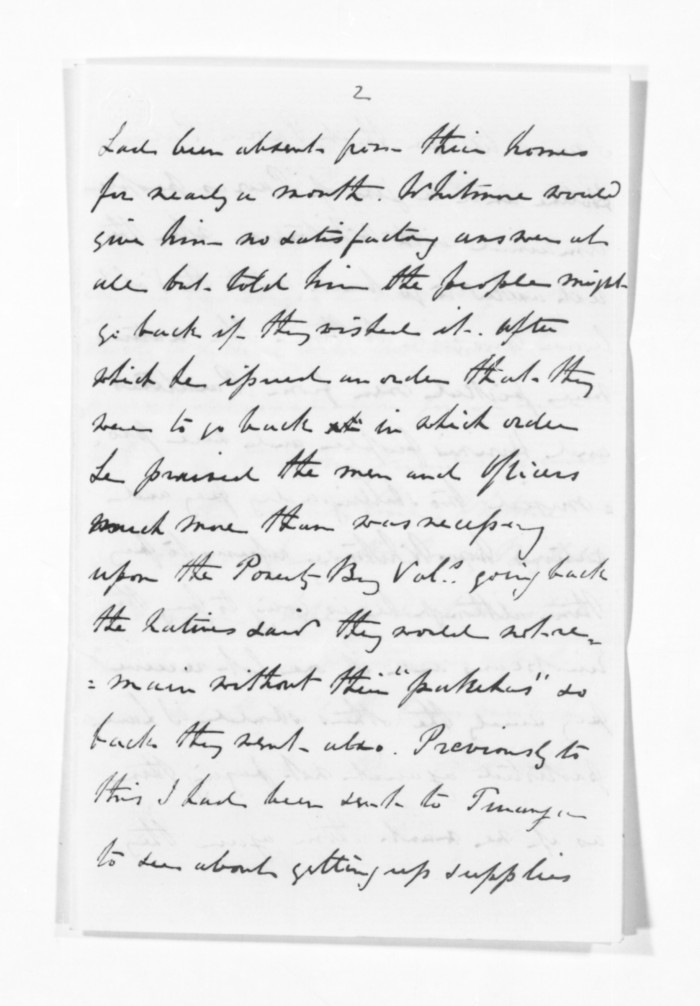 2
had been absent from their homes
for nearly a month. Whitmore would
give him no satisfactory answer at
all but told him the people might
go back if they wished it. After
which he issued an order that they
were to go back in which order
he praised the men and Officers
much more than was necessary
upon the Poverty Bay Vols. going back
the natives said they would not re=
=main without their "pakehas" so
back they went also. Previously to
this I had been sent to Turanga
to see about getting up supplies